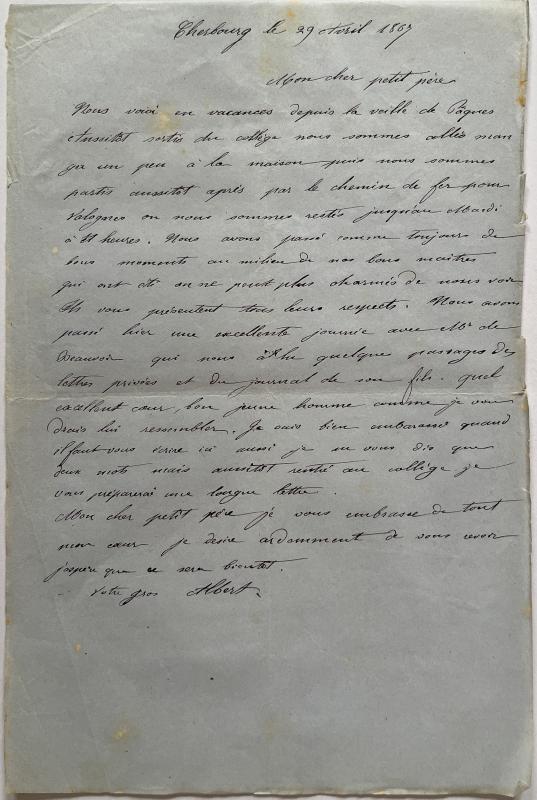 Cherbourg le 29 Avril 1867
Mon cher petit père
Nous voici en vacances depuis la veille de Pâques
Aussitôt sortis du collège nous sommes allés man
ger un peu à la maison puis nous sommes
partis aussitôt après par le chemin de fer pour
Valognes ou nous sommes restés jusqu'au Mardi
à 11 heures. Nous avons passé comme toujours de
bons moments au milieu de nos bons maîtres
qui ont été on ne peut plus charmés de nous voir
Ils vous présentent tous leurs respects. Nous avons
passé hier une excellente journée avec Mr de
Beauvoir qui nous a lu quelque passages des
lettres privées et du journal de son fils. quel
excellent cœur, bon jeune homme comme je vou
drais lui ressembler. Je suis bien embarassé quand
il faut vous écrire ici aussi je ne vous dis que
deux mots mais aussitôt rentré au collège je
vous préparerai une longue lettre.
Mon cher petit père je vous embrasse de tout
mon cœur je desire ardemment de vous revoir
j'espère que ce sera bientôt.
Votre gros Albert.